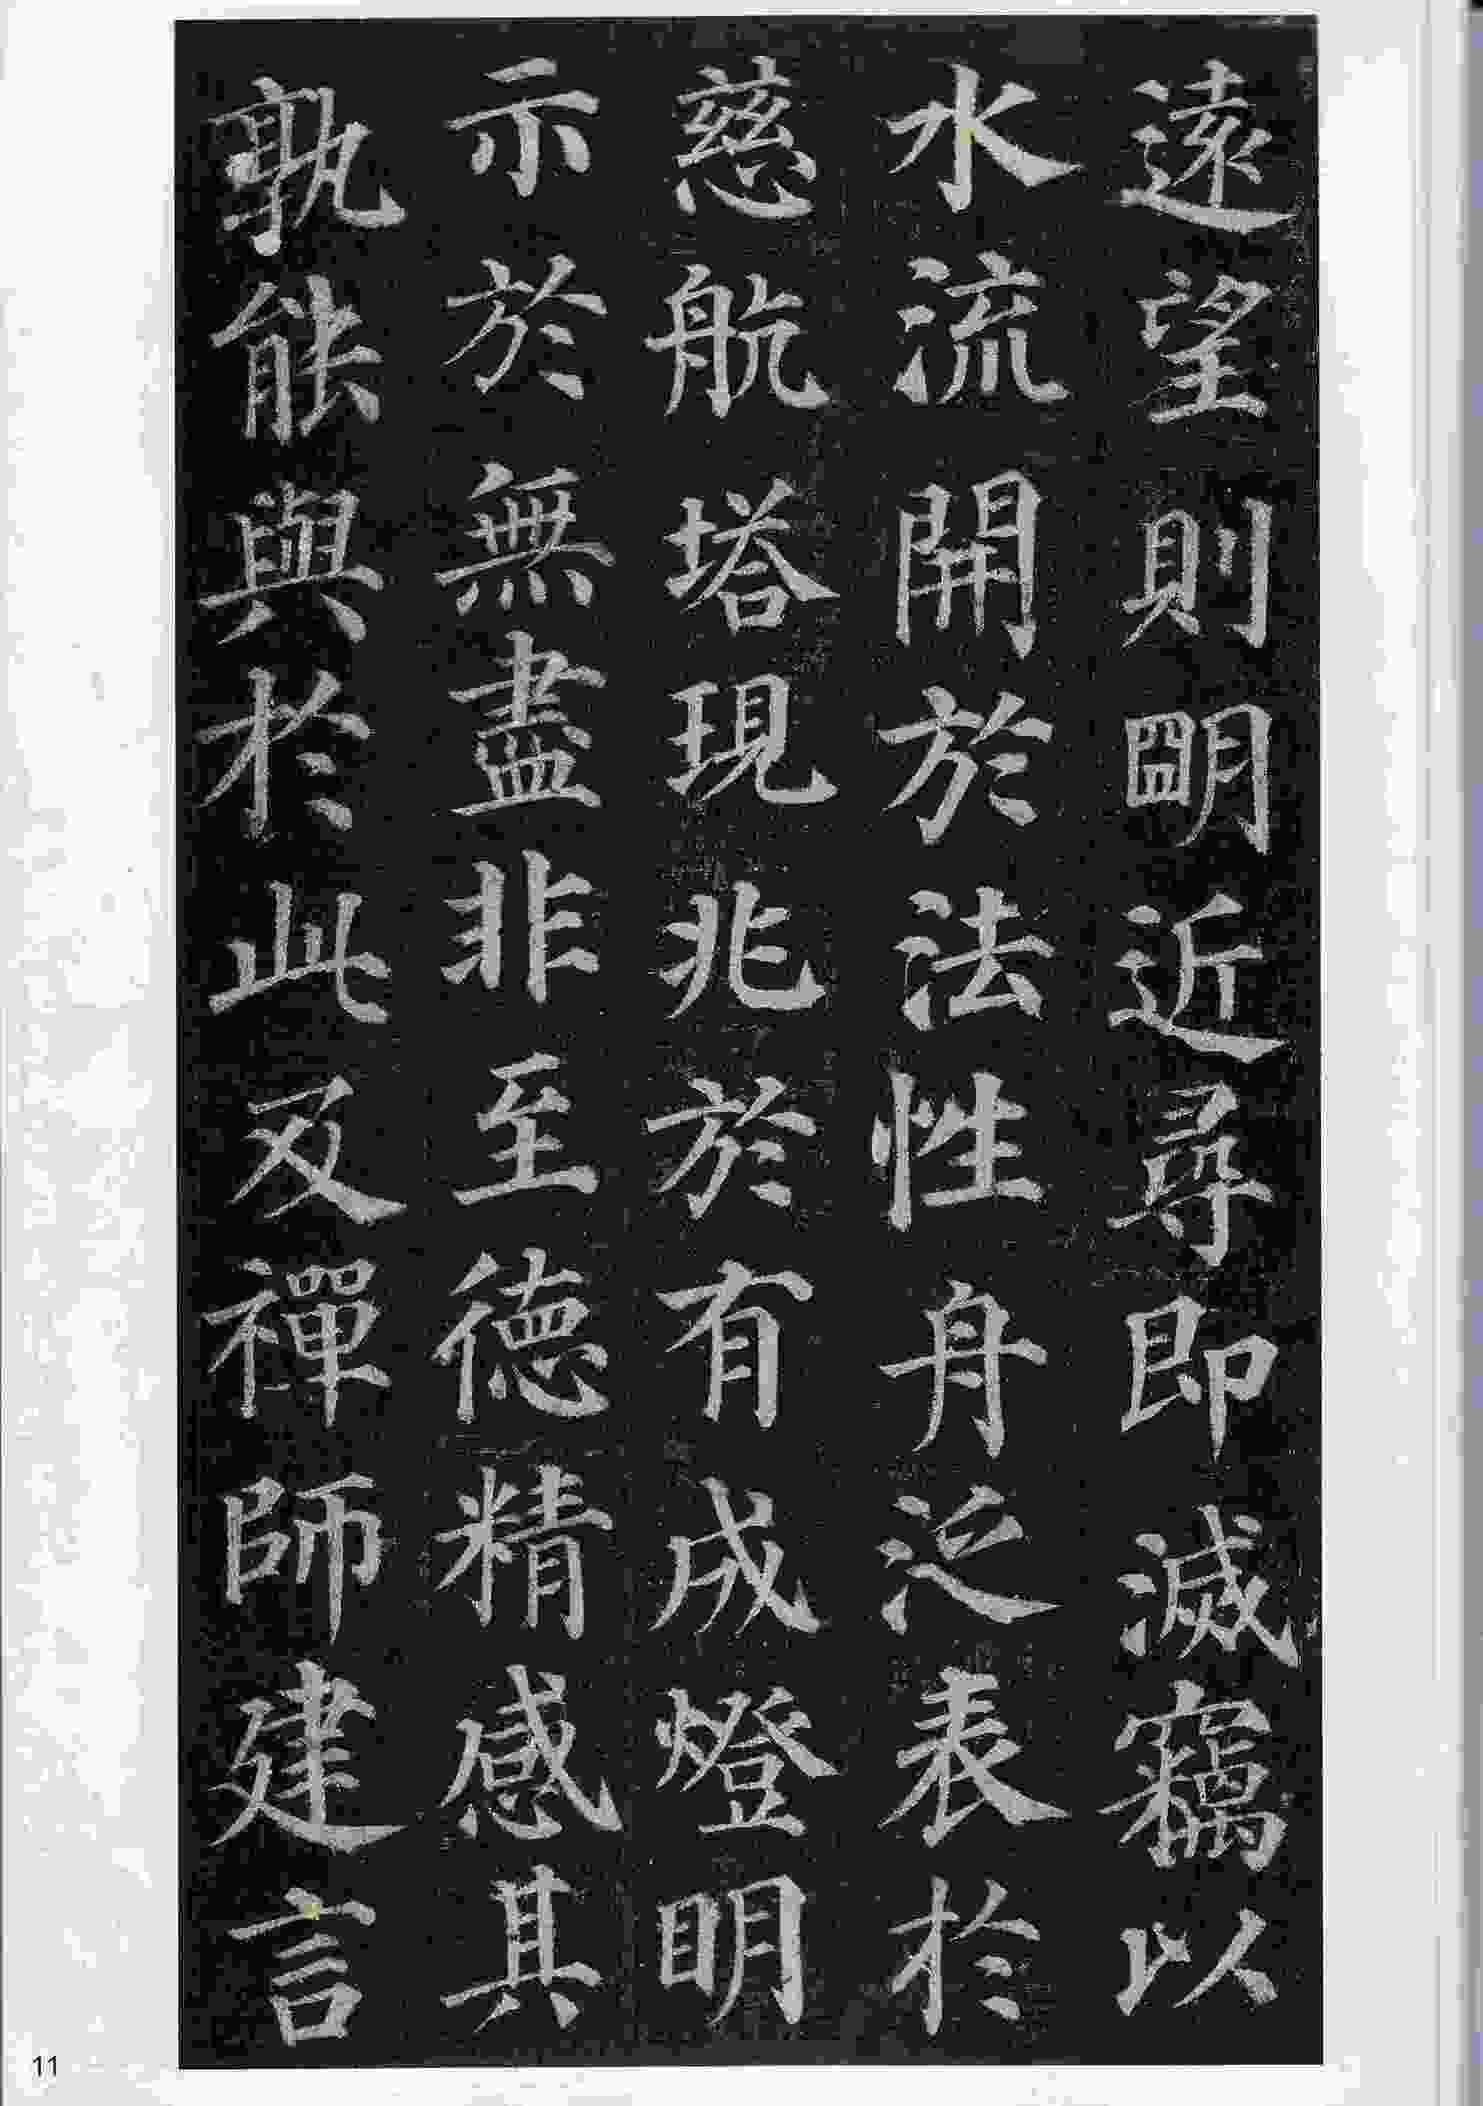 遠望則朙近尋即滅竊以
水流開於法性舟泛表於
慈航塔現兆於有成燈明
示於無盡非至德精感其
孰能與於此及禪師建言
11